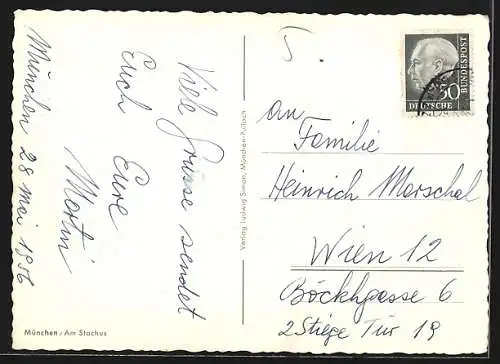 München 28 Mai 1956
Viele Grüsse sendet
Euch Eure
Martin
München / Am Stachus
Verlag Ludwig Simon, München-Pullach
50
DEUTSCHE
BUNDESPOST
An
Familie
Heinrich Marschal
Wien 12
Böckhgasse 6
2 Stiege Tür 19